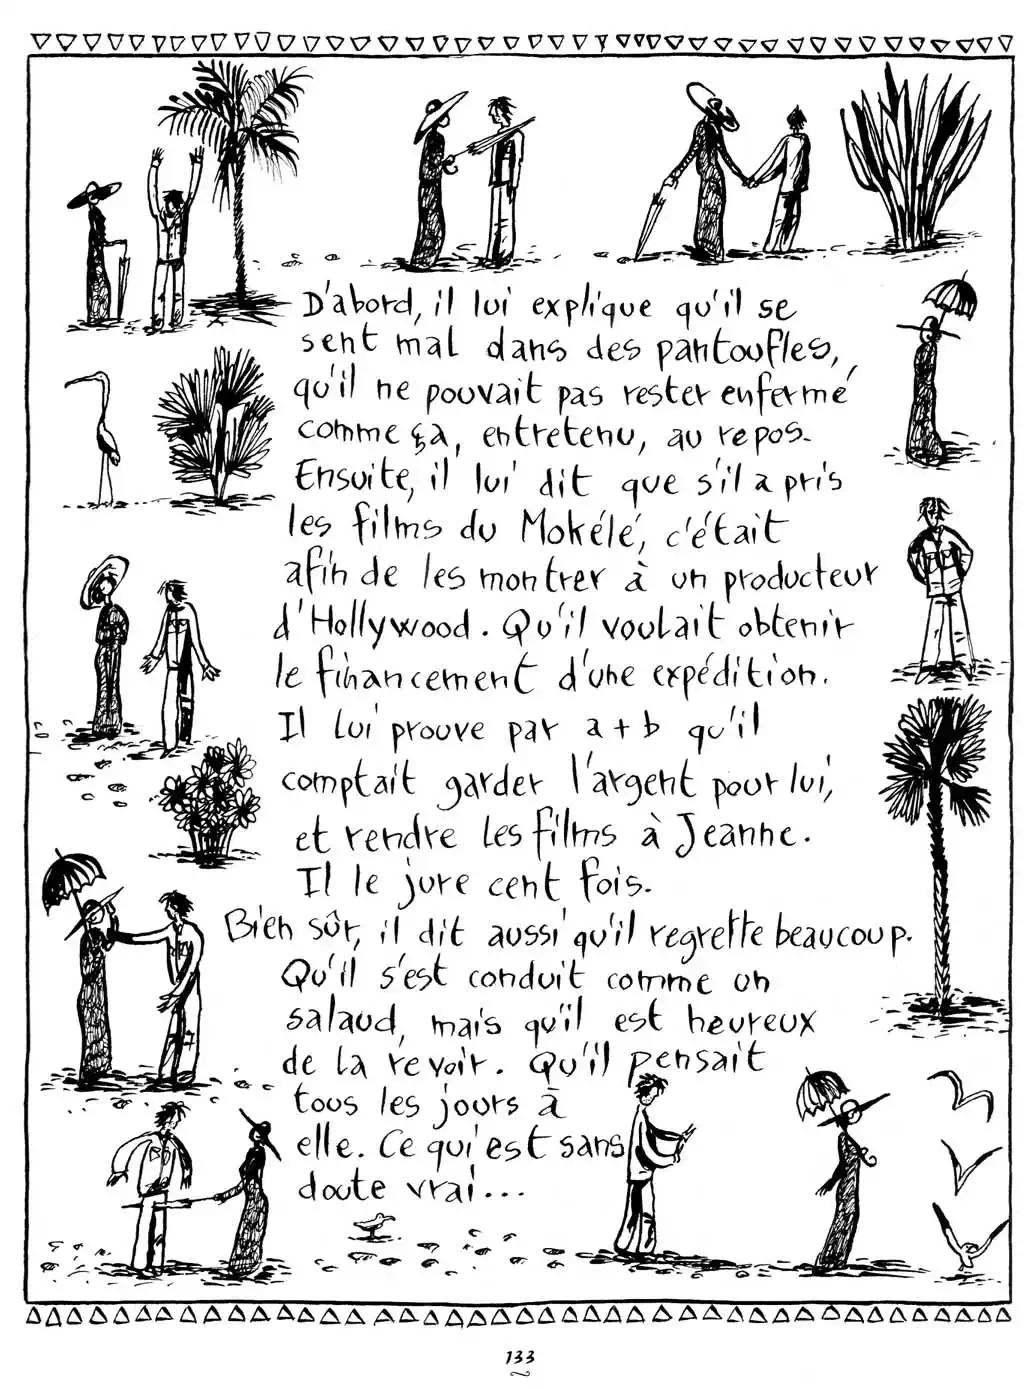 D'abord, il lui explique qu'il se
sent mal dans des pantoufles,
qu'il ne pouvait pas rester enfermé
comme ça, entretenu, au repos.
Ensuite, il lui dit que s'il a pris
les films du Mokélé, c'était
afin de les montrer à un producteur
d'Hollywood. Qu'il voulait obtenir
le financement d'une expédition.
Il lui prouve par a + b qu'il
comptait garder l'argent pour lui,
et rendre les films à Jeanne.
Il le jure cent fois.
Bien sûr, il dit aussi qu'il regrette beaucoup.
Qu'il s'est conduit comme un
salaud, mais qu'il est heureux
de la revoir. Qu'il pensait
tous les jours à
elle. Ce qui est sans
doute vrai...
133